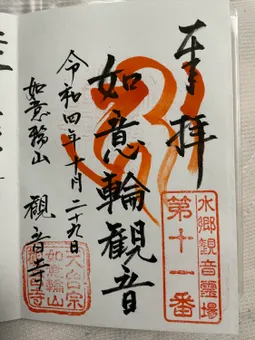 奉拝
水郷観音霊場
第十一番
如意輪観音
令和四年十月二十九日
如意輪山
観音寺
天台宗
如意輪山
観音寺